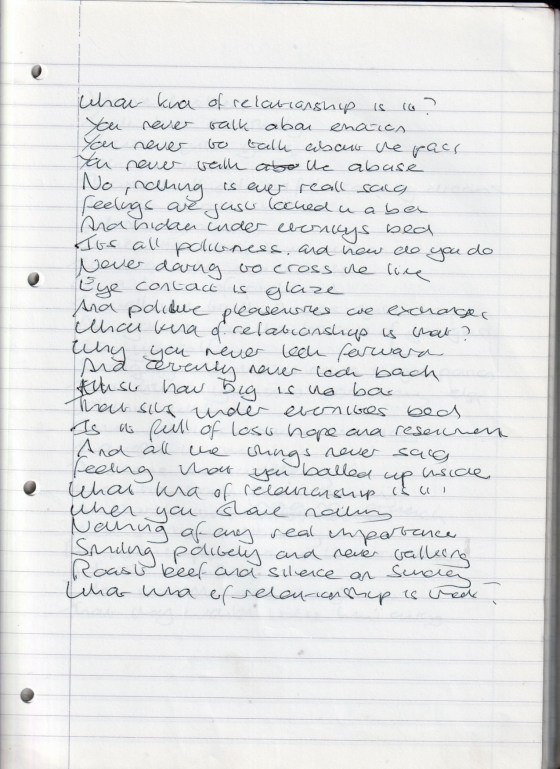 What kind of relationship is it?
You never talk about emotion
You never to talk about the past
You never talk the abuse
No, nothing is ever reall said
Feelings are just locked in a box
And hidden under everonys bed
Its all politeness, and how do you do
Never daring to cross the line
Eye contact is glaze
And politive pleasentries are exchanges
What kind of relationship is that?
Why you never look forward
And certainly never look back
Just how big is the box
That sits under everones bed
Is it full of lost hope and resentment
And all the things never said
Feeling that you balled up inside
What kind of relationship is it!
When you share nothing
Nothing of any real importance
Smiling politely and never talking
Roast beef and silence on Sunday
What kind of relationship is that?